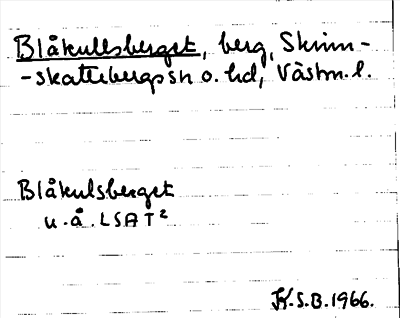 Blåkullsberget, berg, Skinn-
-skattebergs sn o. hd, Västm. l.
Blåkulsberget
u.å. LSA T²
K.S.B. 1966.